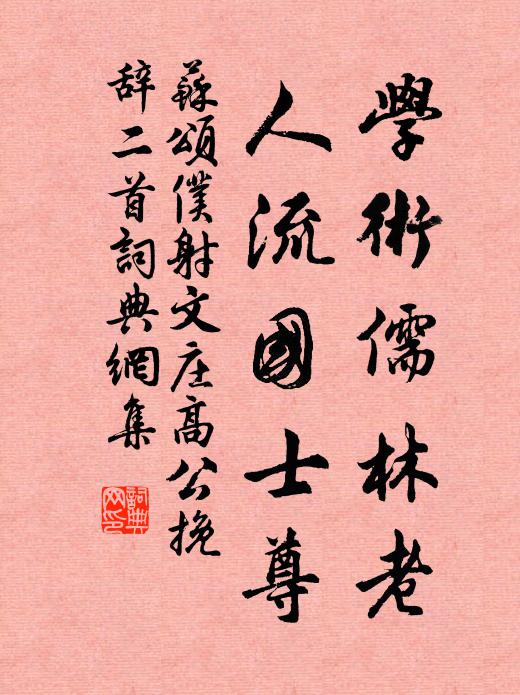 學術儒林老
人流國士尊
蘇頌僕射文庄高公挽
辞二首詞典網集
詞典网印